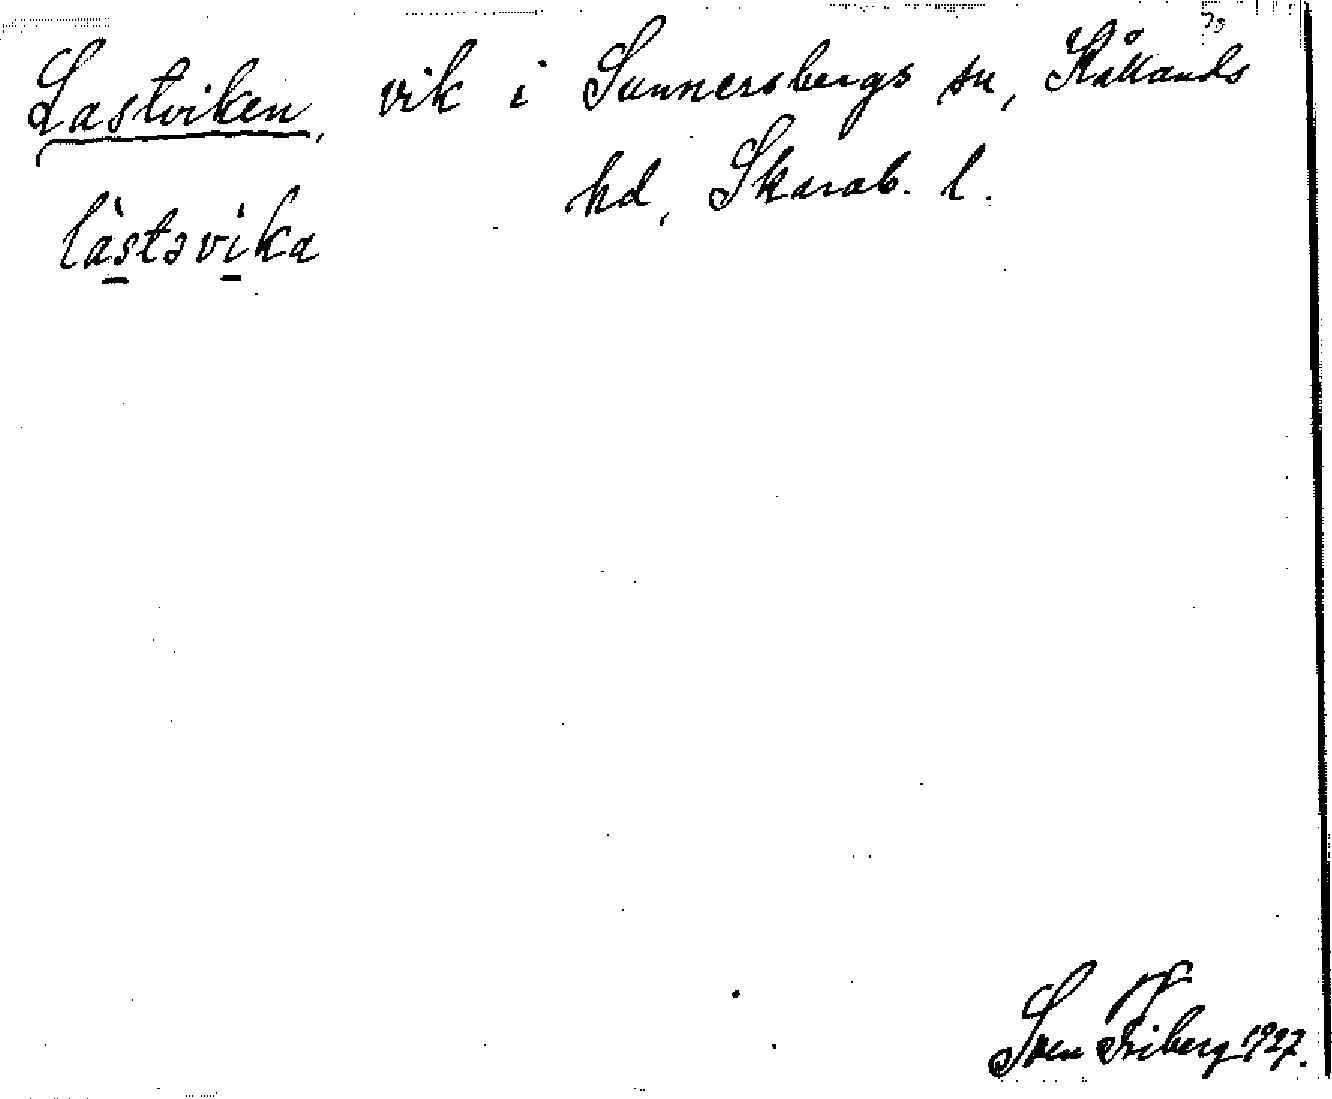 Lastviken, vik i Sunnersbergs sn, Kållands
hd, Skarab. l.
làstəvika
Sven Friberg 1927.